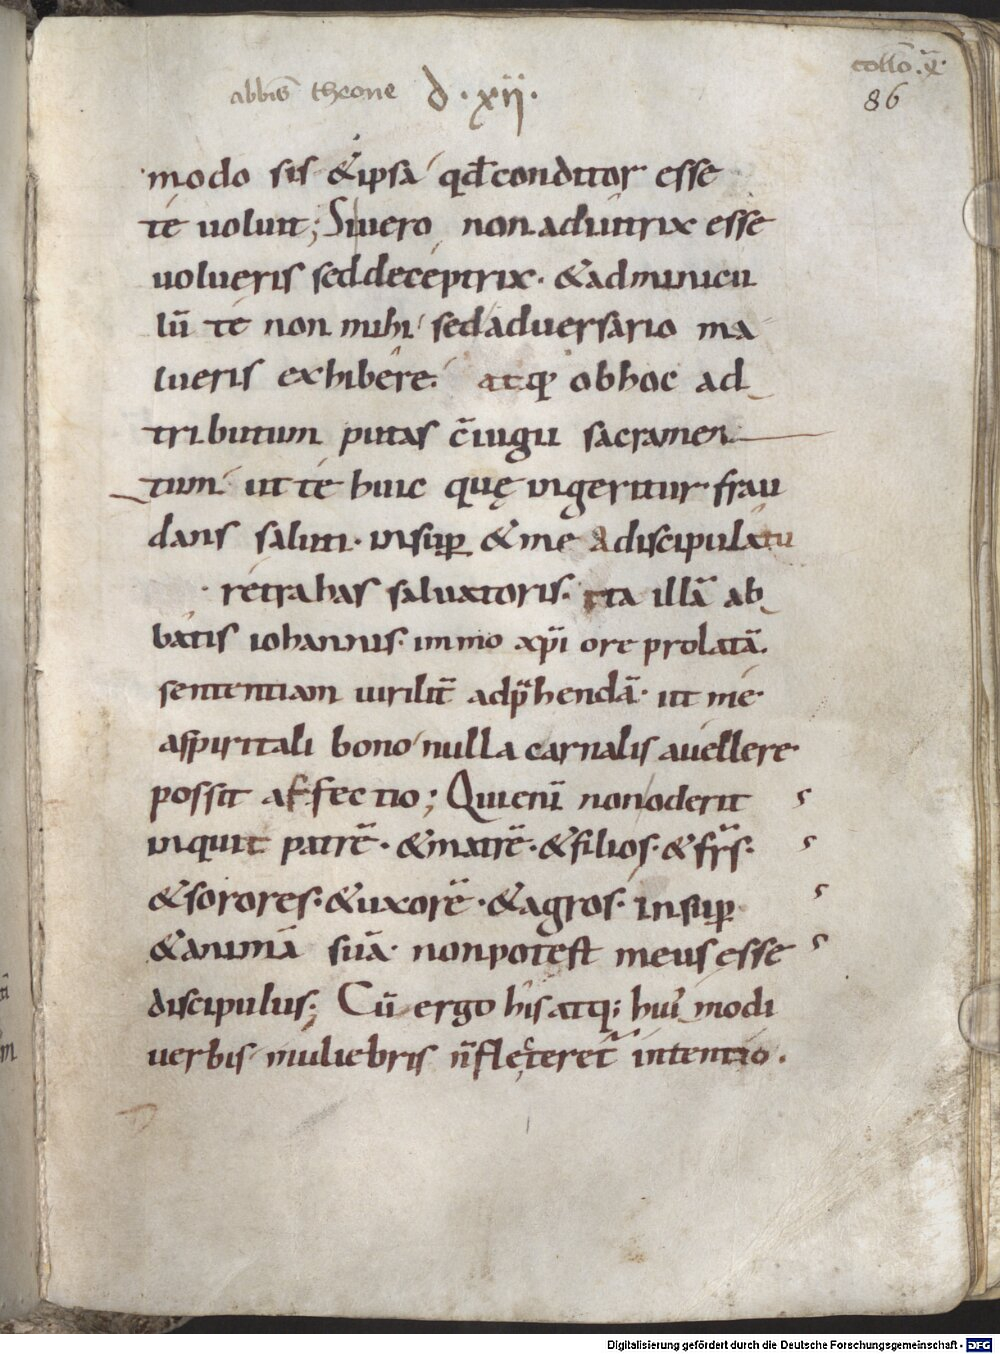 abbīs theone d · xii ·
collō · x̄ ·
86
modo sis & ipsa qđ conditor esse
te uoluit; Si uero non adiutrix esse
uolueris sed deceptrix · & adminicu
lū te non mihi sed aduersario ma
lueris exhibere · atq; ob hoc ad
tributum putas c̄iugii sacramen
tum ut te huic quę ingeritur frau
dans saluti · insup̱ & me a discipulatu
retrahas saluatoris · ita illā ab
batis iohannis · immo xp̄i ore prolatā ·
sententiam uirilit̄ adp̄hendā · ut me
a spiritali bono nulla carnalis auellere ·
possit affectio ; Qui enī non oderit
inquit patrē · & matrē · & filios · & frs̄ ·
& sorores · & uxorē · & agros · insup̱
& animā suā · non potest meus esse
discipulus ; Cū ergo his atq; hui' modi
uerbis muliebris n̄ flecteret̄ intentio .
Digitalisierung gefördert durch die Deutsche Forschungsgemeinschaft - DFG